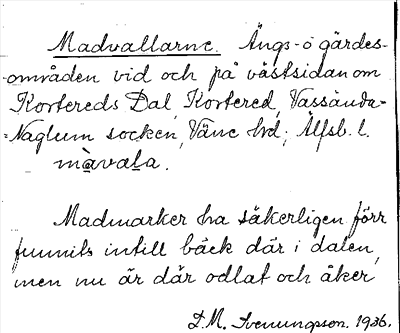 Madvallarne. Ängs- o gärdes-
-områden vid och på västsidan om
Kortereds Dal, Kortered, Vassända-
=Naglum socken, Väne hrd; Älfsb. l.
màvaḷa.
Madmarker ha säkerligen förr
funnits intill bäck där i dalen,
men nu är där odlat och åker
D. M. Svenungsson. 1936.